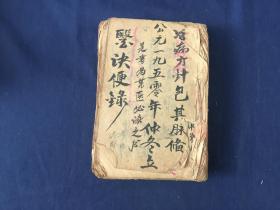 治病方針包其脉偹
公元一九五零年仲冬立
是書為業医必讀之書
醫訣便錄